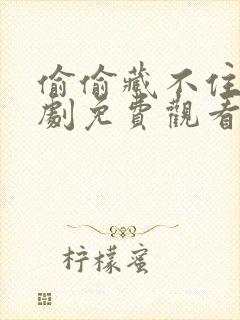 偷偷藏不住
劇免費觀看
柠檬蜜